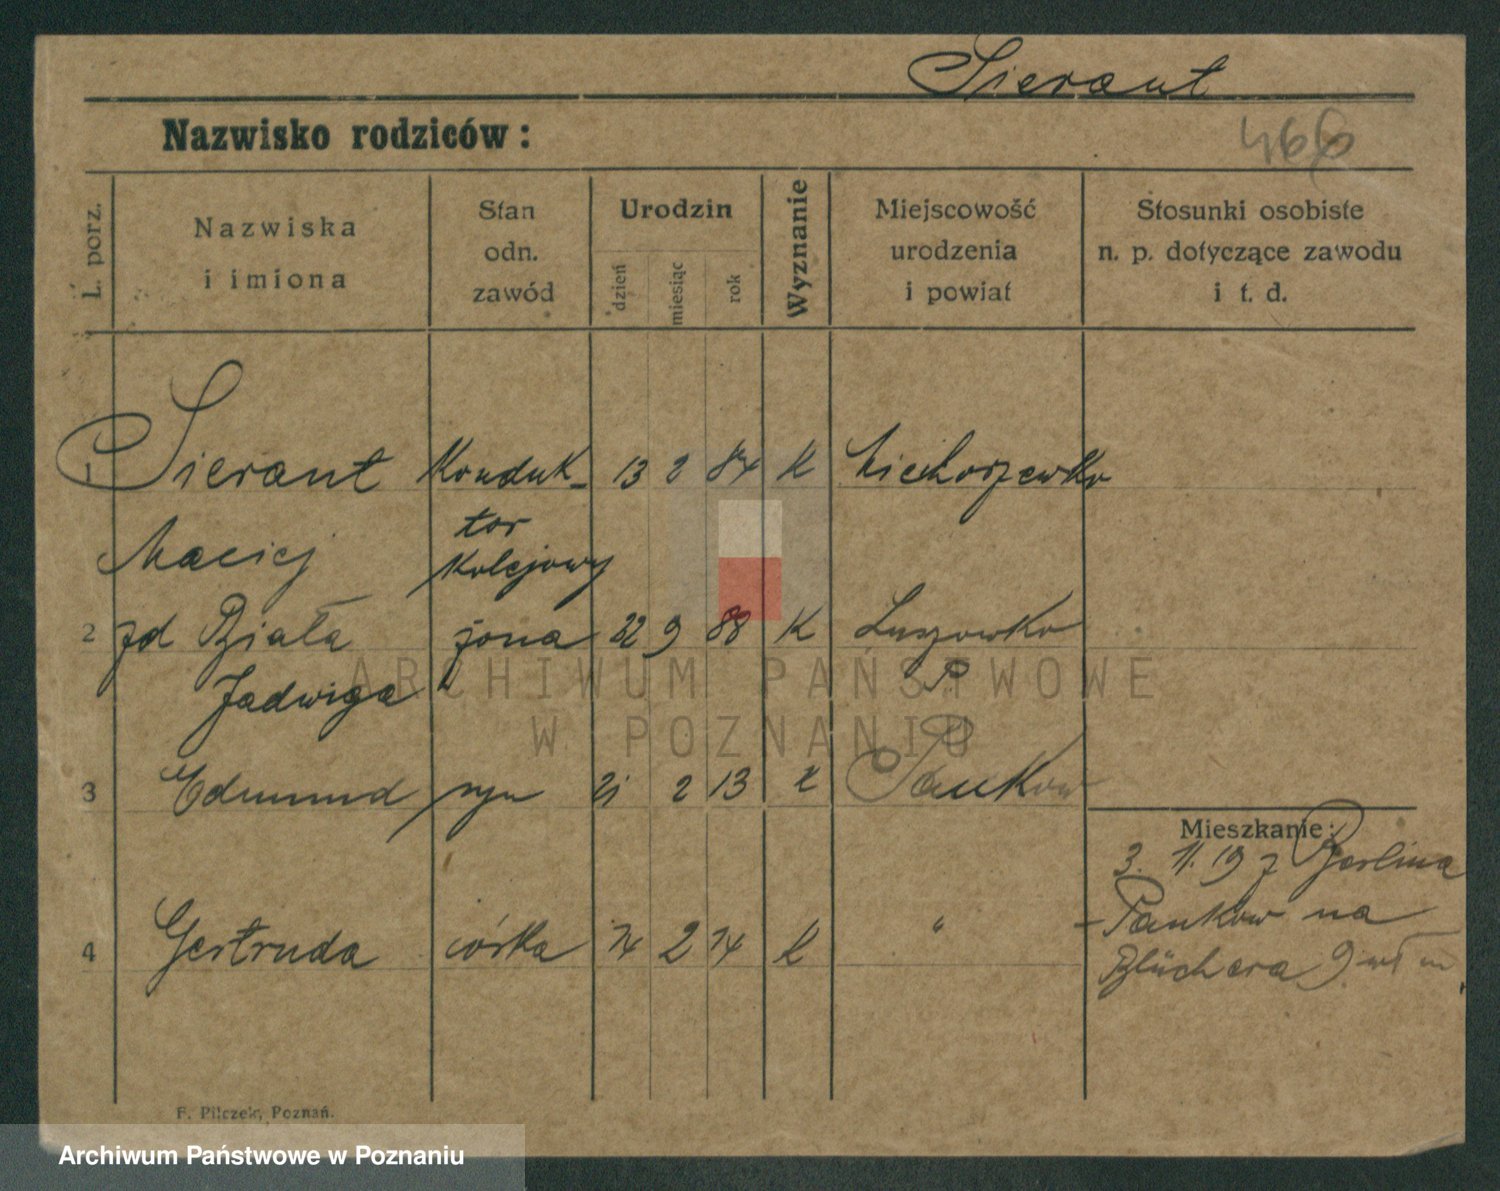 Sierant
Nazwisko rodziców:
466
L. porz.
Nazwiska
i imiona
Stan
odn.
zawód
Urodzin
dzień
miesiąc
rok
Wyznanie
Miejscowość
urodzenia
i powiat
Stosunki osobiste
n. p. dotyczące zawodu
i t. d.
1 Sierant Konduk- 13 2 84 K
Maciej tor
kolejowy
2 zd Biała żona 22 9 88 K Luszowko
Jadwiga P
3 Edmund syn 21 2 13 K Pankow
Mieszkanie:
3. 11. 19 z Berlina
4 Gertruda córka 14 2 14 K "
- Pankow na
Blüchera 9
F. Pilczek, Poznań.
ARCHIWUM PAŃSTWOWE
W POZNANIU
Archiwum Państwowe w Poznaniu